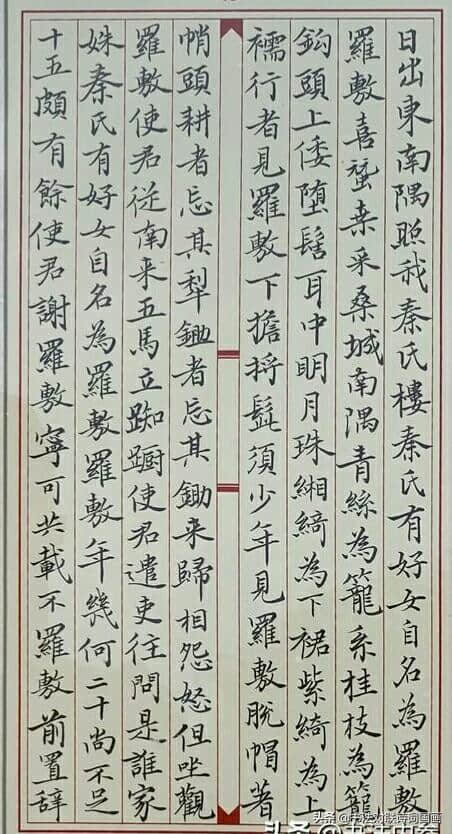 日出東南隅照我秦氏樓秦氏有好女自名為羅敷
羅敷喜蚕桒采桑城南隅青絲為籠系桂枝為籠
鈎頭上倭堕髻耳中明月珠緗綺為下裙紫綺為上
襦行者見羅敷下擔捋髭須少年見羅敷脫帽著
帩頭耕者忘其犁鋤者忘其鋤来歸相怨怒但坐觀
羅敷使君從南来五馬立踟躕使君遣吏往問是誰家
姝秦氏有好女自名為羅敷羅敷年幾何二十尚不足
十五頗有餘使君謝羅敷寧可共載不羅敷前置辭
头条@书法对联诗词国画